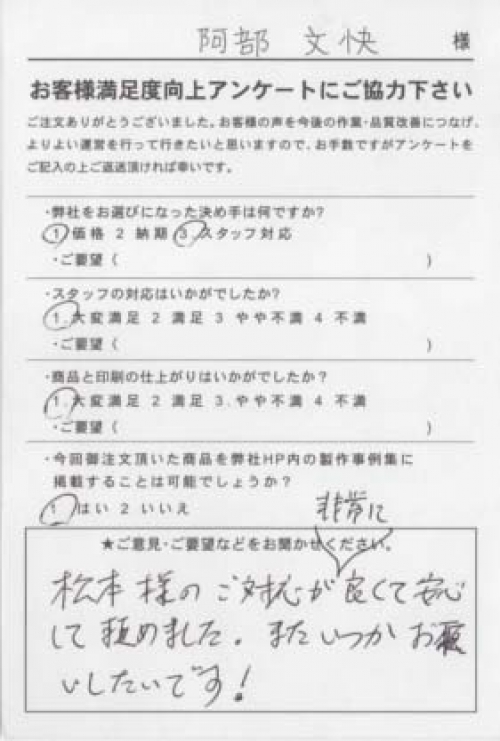 阿部 文快 様
お客様満足度向上アンケートにご協力下さい
ご注文ありがとうございました。お客様の声を今後の作業・品質改善につなげ、
よりよい運営を行って行きたいと思いますので、お手数ですがアンケートを
ご記入の上ご返送頂ければ幸いです。
・弊社をお選びになった決め手は何ですか?
1 価格 2 納期 3.スタッフ対応
・ご要望 ( )
・スタッフの対応はいかがでしたか?
1.大変満足 2 満足 3 やや不満 4 不満
・ご要望 ( )
・商品と印刷の仕上がりはいかがでしたか?
1.大変満足 2 満足 3.やや不満 4 不満
・ご要望 ( )
・今回御注文頂いた商品を弊社HP内の製作事例集に
掲載することは可能でしょうか?
1 はい 2 いいえ
★ご意見・ご要望などをお聞かせください。
非常に
松本様のご対応が良くて安心
して頼めました。またいつかお願
いしたいです!